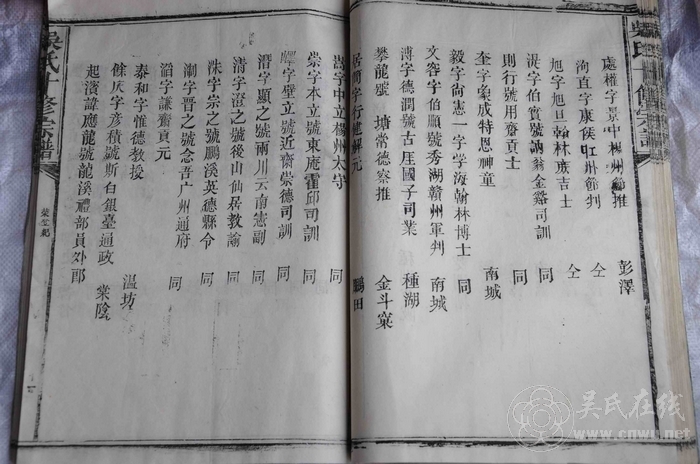 吳氏十修宗譜
處權字景中楊州節推 彭澤
洵直字康侯江州節判 仝
旭字旭旦翰林庶吉士 仝
湜字伯賢號訥翁金谿司訓 同
則行號用齋貢士 同
奎字象成特恩神童 南城
毅字尚憲一字學海翰林博士 同
文容字伯順號秀湖贛州軍判 南城
溥字德潤號古厓國子司業 種湖
攀龍號 塘常德察推 金斗窠
居簡字行建解元 鵬田
字中立楊州太守 同
崇字本立號東庵霍邱司訓 同
字壁立號近齋崇德司訓 同
潛字顯之號兩川云南憲副 同
清字澄之號後山仙居教諭 同
洙字崇之號鵬溪英德縣令 同
淛字晋之號念吾广州通府 同
滔字謙齋貢元 同
泰和字惟德教授 溫坊
餘庆字彦積號斯白銀臺通政 棠陰
起潢諱應龍號龍溪禮部員外郎
吳氏十修宗譜
吴氏在线
www.cnwu.net